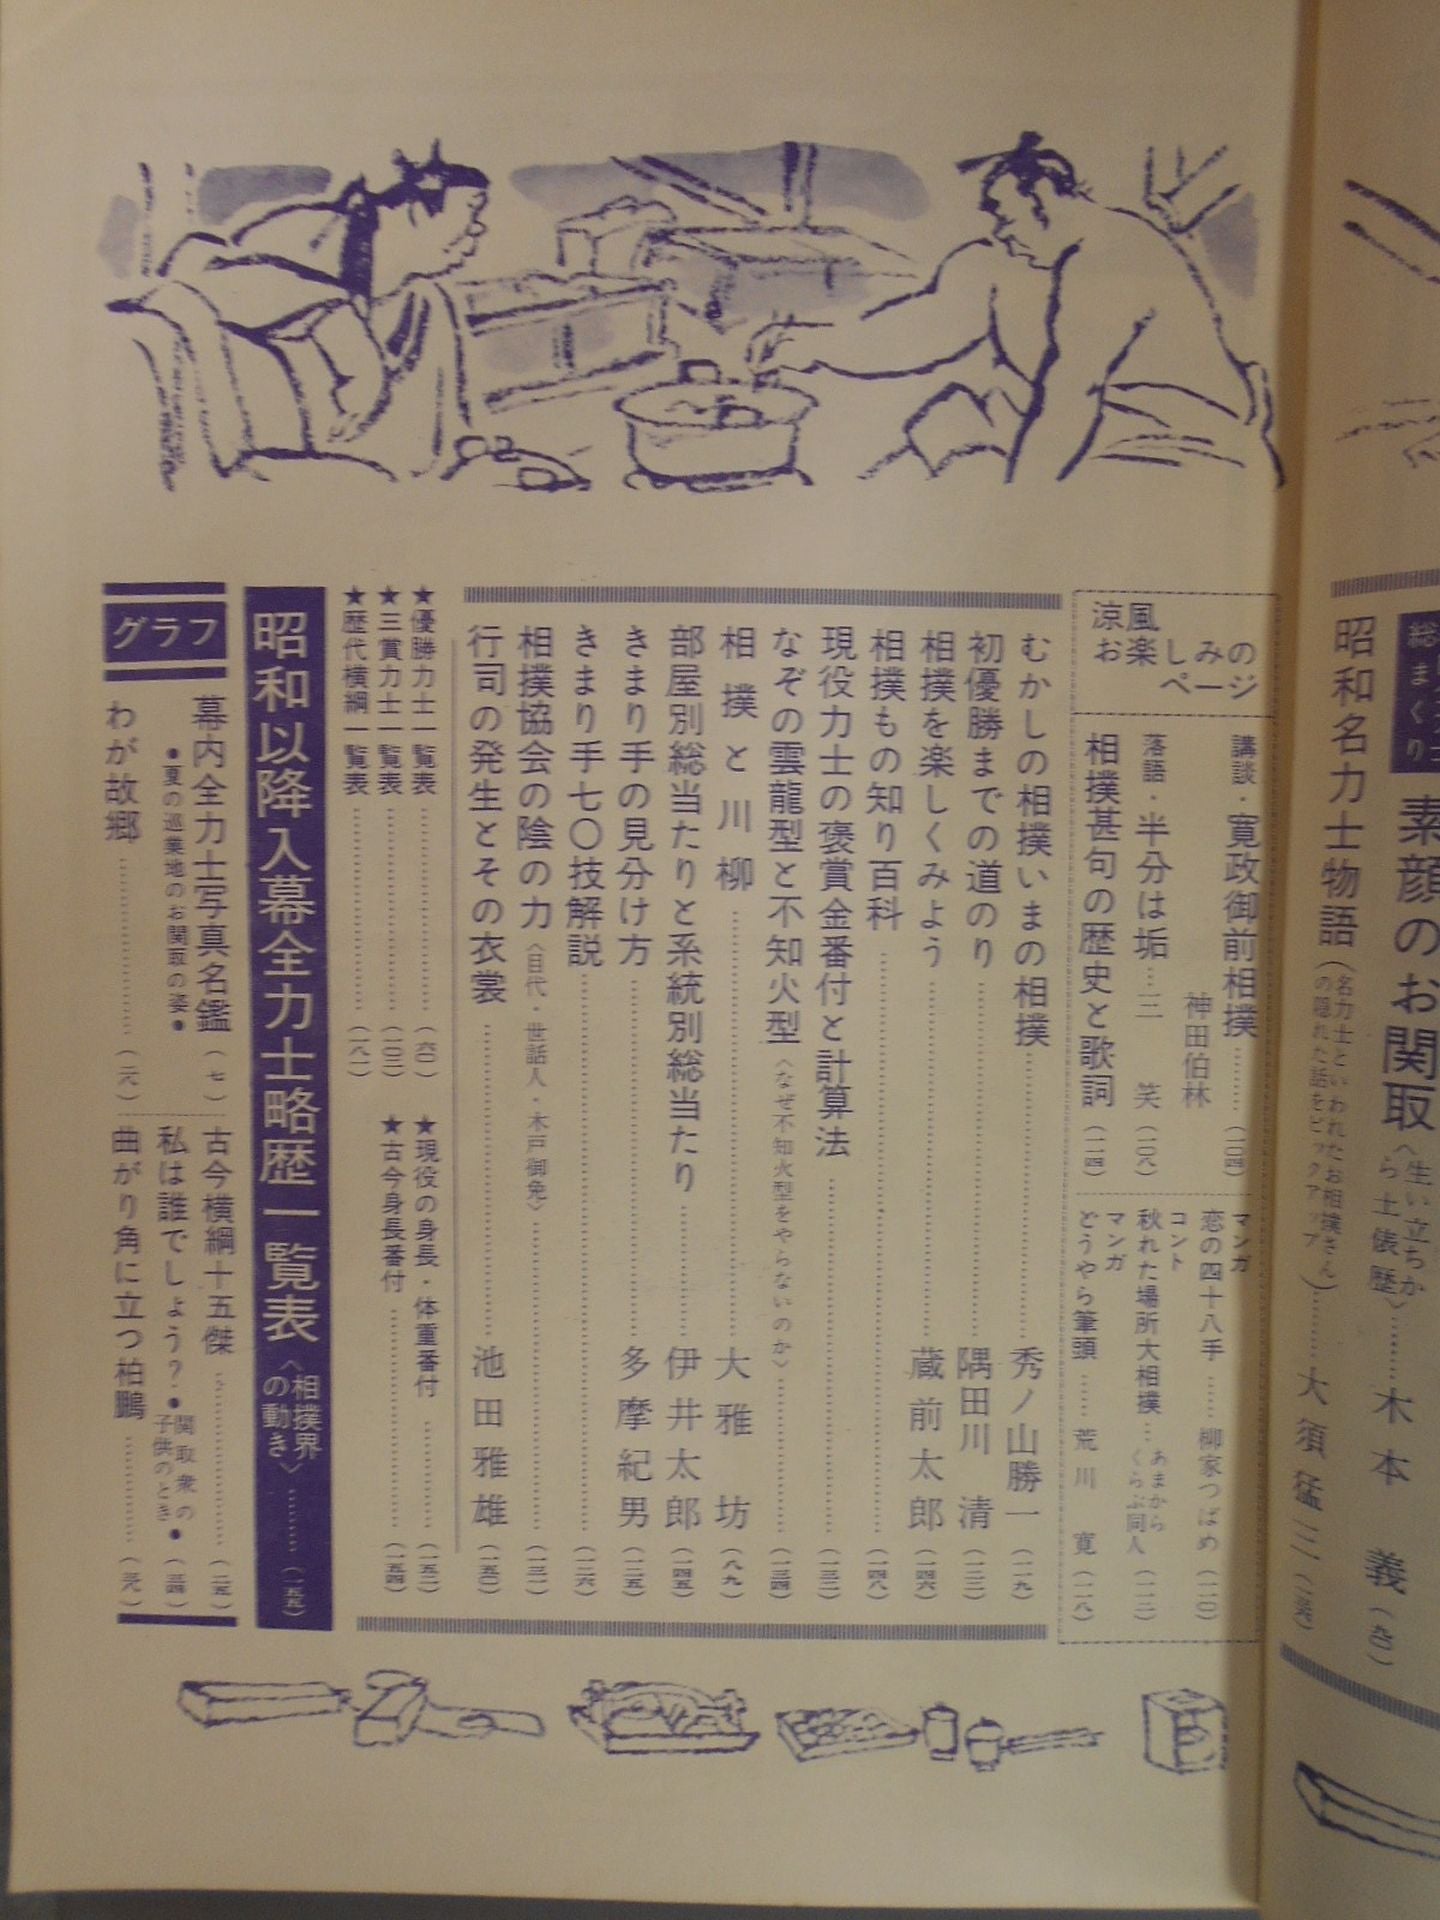 総まくり
素顔のお関取
〈生い立ちか
ら土俵歴〉
木本義
昭和名力士物語
(名力士といわれたお相撲さん
の隠れた話をピックアップ)
大須猛三
涼風
お楽しみの
ページ
講談・寛政御前相撲………(一〇四)
神田伯林
落語・半分は垢…三笑(一〇八)
相撲甚句の歴史と歌詞(一一四)
マンガ
恋の四十八手……柳家つばめ(一一〇)
コント
秋れた場所大相撲…あまから
くらぶ同人(一一二)
マンガ
どうやら筆頭……荒川寛(一一八)
むかしの相撲いまの相撲………秀ノ山勝一(一一九)
初優勝までの道のり………隅田川清(一二二)
相撲を楽しくみよう………蔵前太郎(一四六)
相撲もの知り百科………(一四八)
現役力士の褒賞金番付と計算法………(一三二)
なぞの雲龍型と不知火型〈なぜ不知火型をやらないのか〉………(一三四)
相撲と川柳………大雅坊(八九)
部屋別総当たりと系統別総当たり………伊井太郎(一四五)
きまり手の見分け方………多摩紀男(一二五)
きまり手七〇技解説………(一二六)
相撲協会の陰の力〈目代・世話人・木戸御免〉………(一三一)
行司の発生とその衣裳………池田雅雄(一五〇)
★優勝力士一覧表………(六〇)
★三賞力士一覧表………(一〇三)
★歴代横綱一覧表………(一八一)
★現役の身長・体重番付………(一五二)
★古今身長番付………(一五四)
昭和以降入幕全力士略歴一覧表〈相撲界
の動き〉………(一五五)
グラフ
幕内全力士写真名鑑(七)
●夏の巡業地のお関取の姿●
わが故郷………(二六)
古今横綱十五傑………(二五)
私は誰でしょう?●関取衆の
子供のとき●(三四)
曲がり角に立つ柏鵬………(三九)